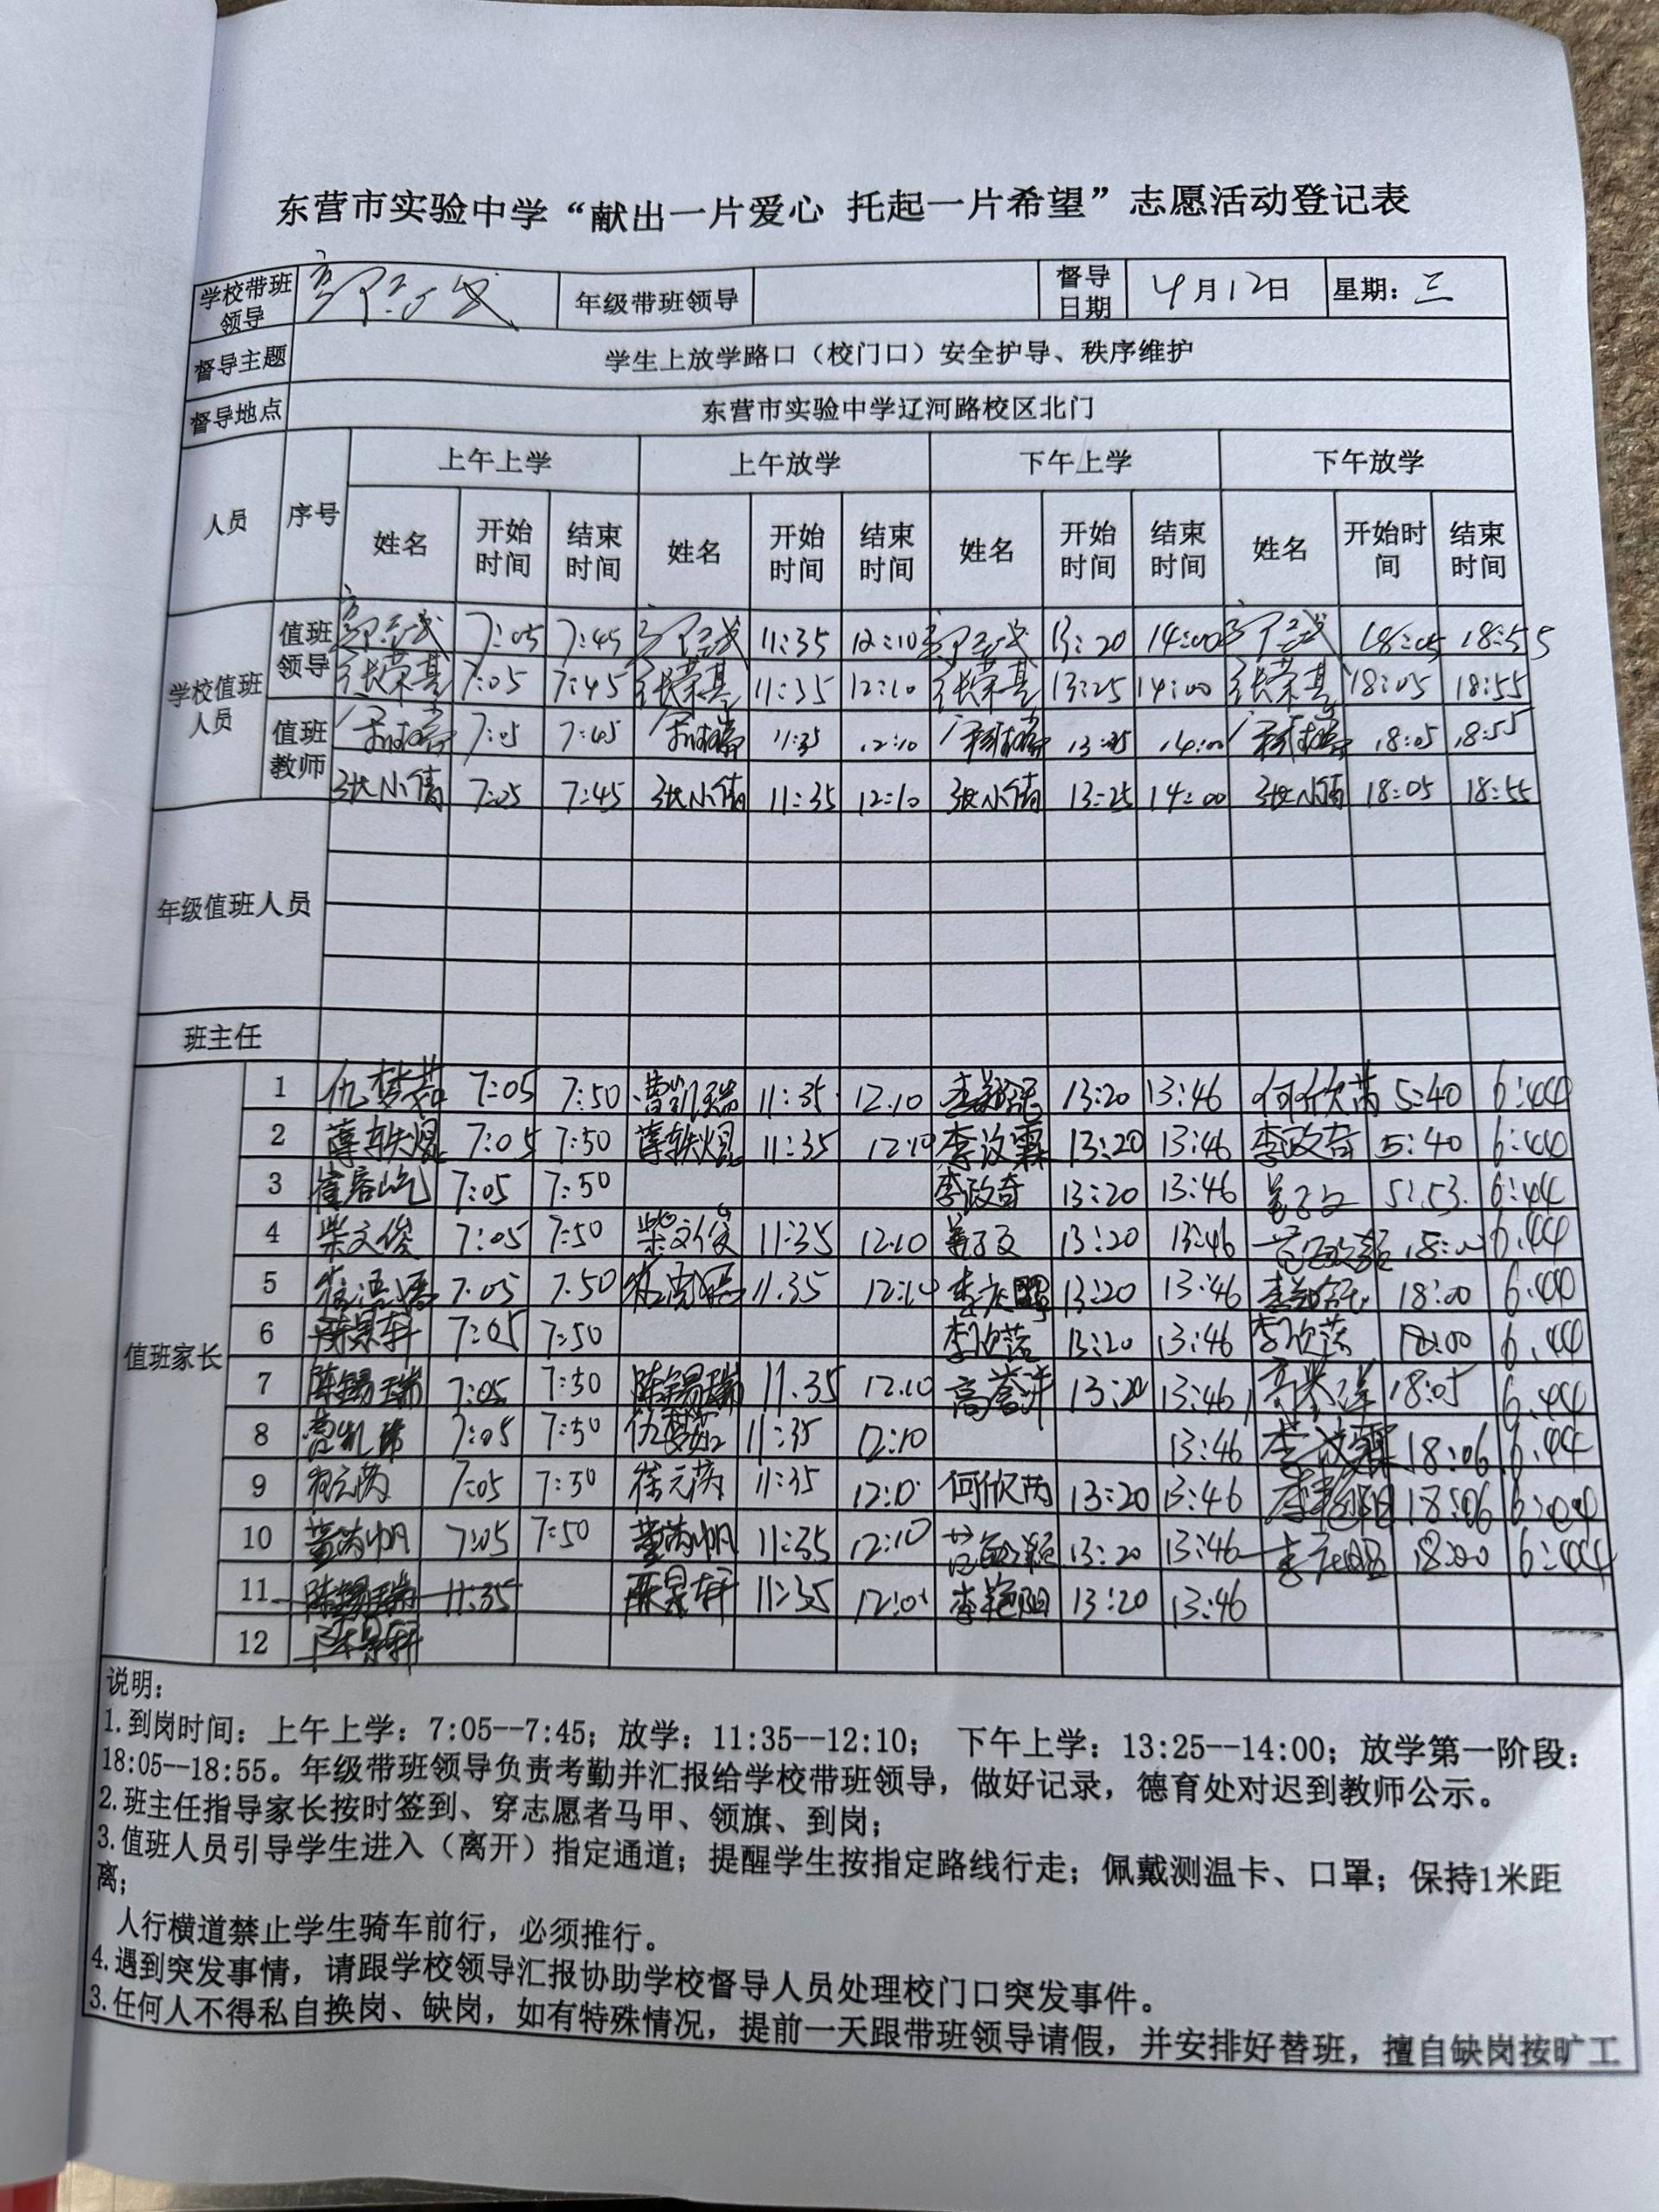 东营市实验中学“献出一片爱心 托起一片希望”志愿活动登记表
学校带班领导 年级带班领导 督导日期 4月12日 星期：三
督导主题 学生上放学路口（校门口）安全护导、秩序维护
督导地点 东营市实验中学辽河路校区北门
人员 序号 上午上学 上午放学 下午上学 下午放学
姓名 开始时间 结束时间 姓名 开始时间 结束时间 姓名 开始时间 结束时间 姓名 开始时间 结束时间
学校值班人员 值班领导 7:05 7:45 11:35 12:10 13:20 14:00 18:05 18:55
张荣基 7:05 7:45 张荣基 11:35 12:10 张荣基 13:25 14:00 张荣基 18:05 18:55
值班教师 7:05 7:45 11:35 12:10 14:00 18:05 18:55
张小倩 7:05 7:45 张小倩 11:35 12:10 张小倩 13:25 14:00 张小倩 18:05 18:55
年级值班人员
班主任
值班家长
1 仇梦茹 7:05 7:50 曹凯瑞 11:35 12.10 13:20 13:46 何欣芮 5:40 6:44
2 薄轶焜 7:05 7:50 薄轶焜 11:35 12:10 李汶霖 13:20 13:46 李政奇 5:40 6:44
3 7:05 7:50 李政奇 13:20 13:46 姜子文 5:53 6:44
4 柴文俊 7:05 7:50 柴文俊 11:35 12.10 姜子文 13:20 13:46 6.44
5 7.05 7.50 11.35 13:20 13:46 18:00 6.44
6 陈景轩 7:05 7:50 李欣蓓 13:20 13:46 李欣蓓 18:00 6.44
7 陈锡瑞 7:05 7:50 陈锡瑞 11.35 12.10 13:20 13:46 18:05 6.44
8 曹凯瑞 7:05 7:50 仇梦茹 11:35 12:10 13:46 李汶霖 18:06 6.44
9 7:05 7:50 徐元芮 11:35 何欣芮 13:20 13:46 李艳阳 18:06
10 董芮帆 7:05 7:50 董芮帆 11:35 12:10 13:20 13:46 18:00 6:44
11 陈锡瑞 11:35 陈景轩 11:35 李艳阳 13:20 13:46
12 陈景轩
说明：
1.到岗时间：上午上学：7:05--7:45；放学：11:35--12:10； 下午上学：13:25--14:00；放学第一阶段：
18:05--18:55。年级带班领导负责考勤并汇报给学校带班领导，做好记录，德育处对迟到教师公示。
2.班主任指导家长按时签到、穿志愿者马甲、领旗、到岗；
3.值班人员引导学生进入（离开）指定通道；提醒学生按指定路线行走；佩戴测温卡、口罩；保持1米距
离；
人行横道禁止学生骑车前行，必须推行。
4.遇到突发事情，请跟学校领导汇报协助学校督导人员处理校门口突发事件。
3.任何人不得私自换岗、缺岗，如有特殊情况，提前一天跟带班领导请假，并安排好替班，擅自缺岗按旷工